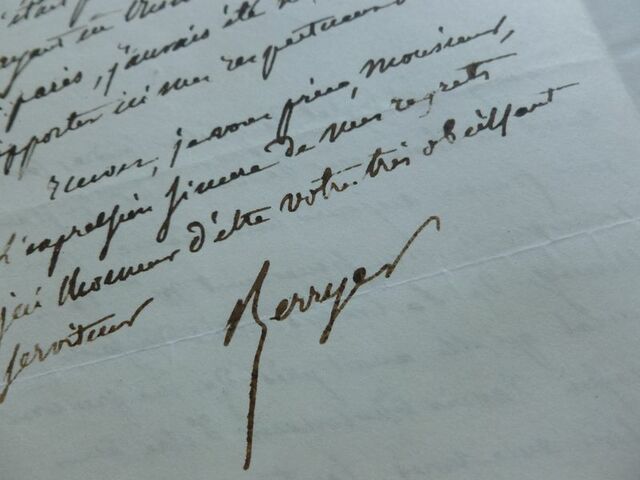 était
ayant eu
paris, j'aurais été
apporter ici mes respectueux
Recevez, je vous prie, monsieur,
L'expression sincere de mes regrets
j'ai l'honneur d'être votre très obéissant
serviteur Berryer